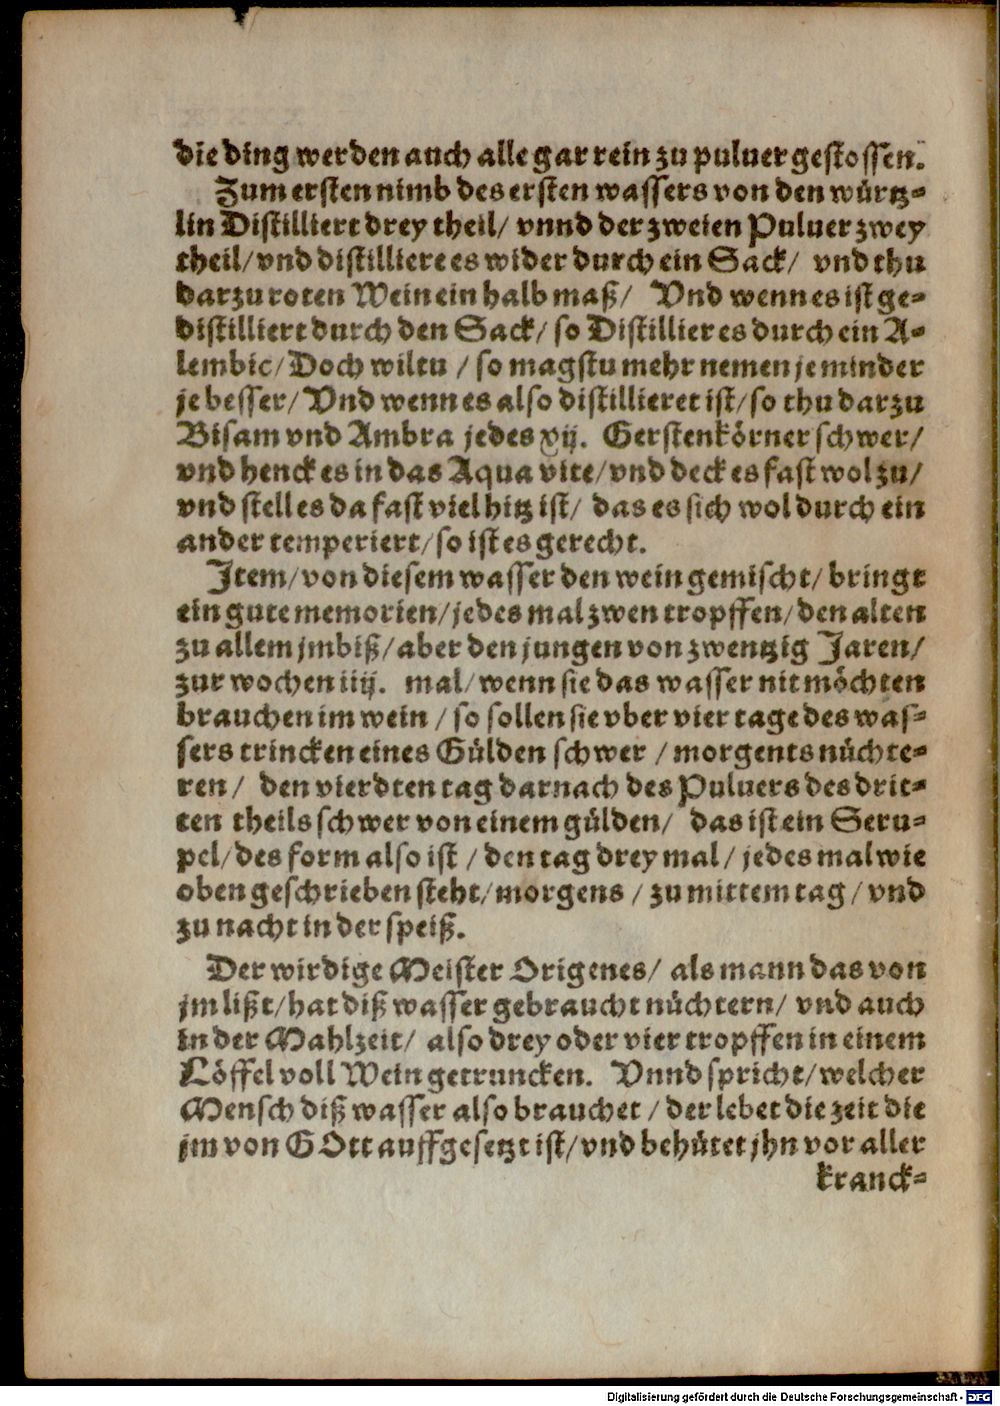 die ding werden auch alle gar rein zu puluer gestossen.
Zum ersten nimb des ersten wassers von den würtz-
lin Distilliert drey theil/ vnnd der zweien Puluer zwey
theil/ vnd distilliere es wider durch ein Sack/ vnd thu
darzu roten Wein ein halb maß/ Vnd wenn es ist ge-
distilliert durch den Sack/ so Distillier es durch ein A-
lembic/ Doch wiltu / so magstu mehr nemen je minder
je besser/ Vnd wenn es also distillieret ist/ so thu darzu
Bisam vnd Ambra jedes xij. Gerstenkörner schwer/
vnd henck es in das Aqua vite/ vnd deck es fast wol zu/
vnd stell es da fast viel hitz ist/ das es sich wol durch ein
ander temperiert/ so ist es gerecht.
Item/ von diesem wasser den wein gemischt/ bringt
ein gute memorien/ jedes mal zwen tropffen/ den alten
zu allem jmbiß/ aber den jungen von zwentzig Jaren/
zur wochen iiij. mal/ wenn sie das wasser nit möchten
brauchen im wein / so sollen sie vber vier tage des was-
sers trincken eines Gülden schwer / morgents nüchte-
ren/ den vierdten tag darnach des Puluers des drit-
ten theils schwer von einem gülden/ das ist ein Scru-
pel/ des form also ist / den tag drey mal/ jedes mal wie
oben geschrieben steht/ morgens / zu mittem tag/ vnd
zu nacht in der speiß.
Der wirdige Meister Origenes/ als mann das von
jm lißt/ hat diß wasser gebraucht nüchtern/ vnd auch
in der Mahlzeit/ also drey oder vier tropffen in einem
Löffel voll Wein getruncken. Vnnd spricht/ welcher
Mensch diß wasser also brauchet / der lebet die zeit die
jm von GOtt auffgesetzt ist/ vnd behütet jhn vor aller
kranck-
Digitalisierung gefördert durch die Deutsche Forschungsgemeinschaft - DFG